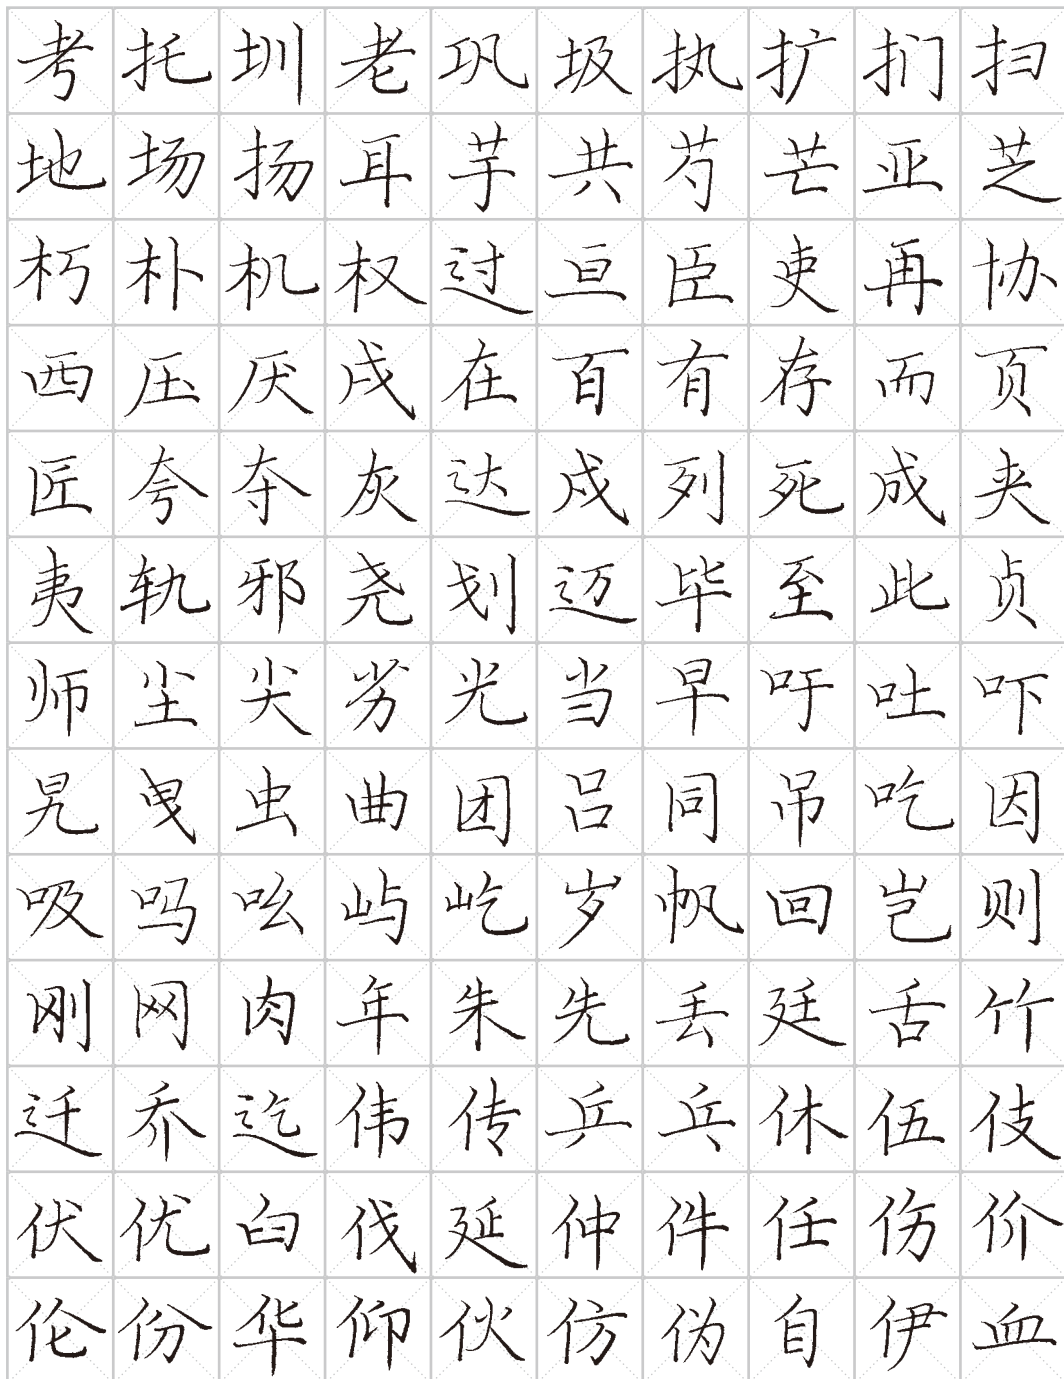 考托圳老巩圾执扩扪扫
地场扬耳芋共芍芒亚芝
朽朴机权过亘臣吏再协
西压厌戌在百有存而页
匠夸夺灰达戍列死成夹
夷轨邪尧划迈毕至此贞
师尘尖劣光当早吁吐吓
旯曳虫曲团吕同吊吃因
吸吗吆屿屹岁帆回岂则
刚网肉年朱先丢廷舌竹
迁乔迄伟传乒乓休伍伎
伏优臼伐延仲件任伤价
伦份华仰伙仿伪自伊血